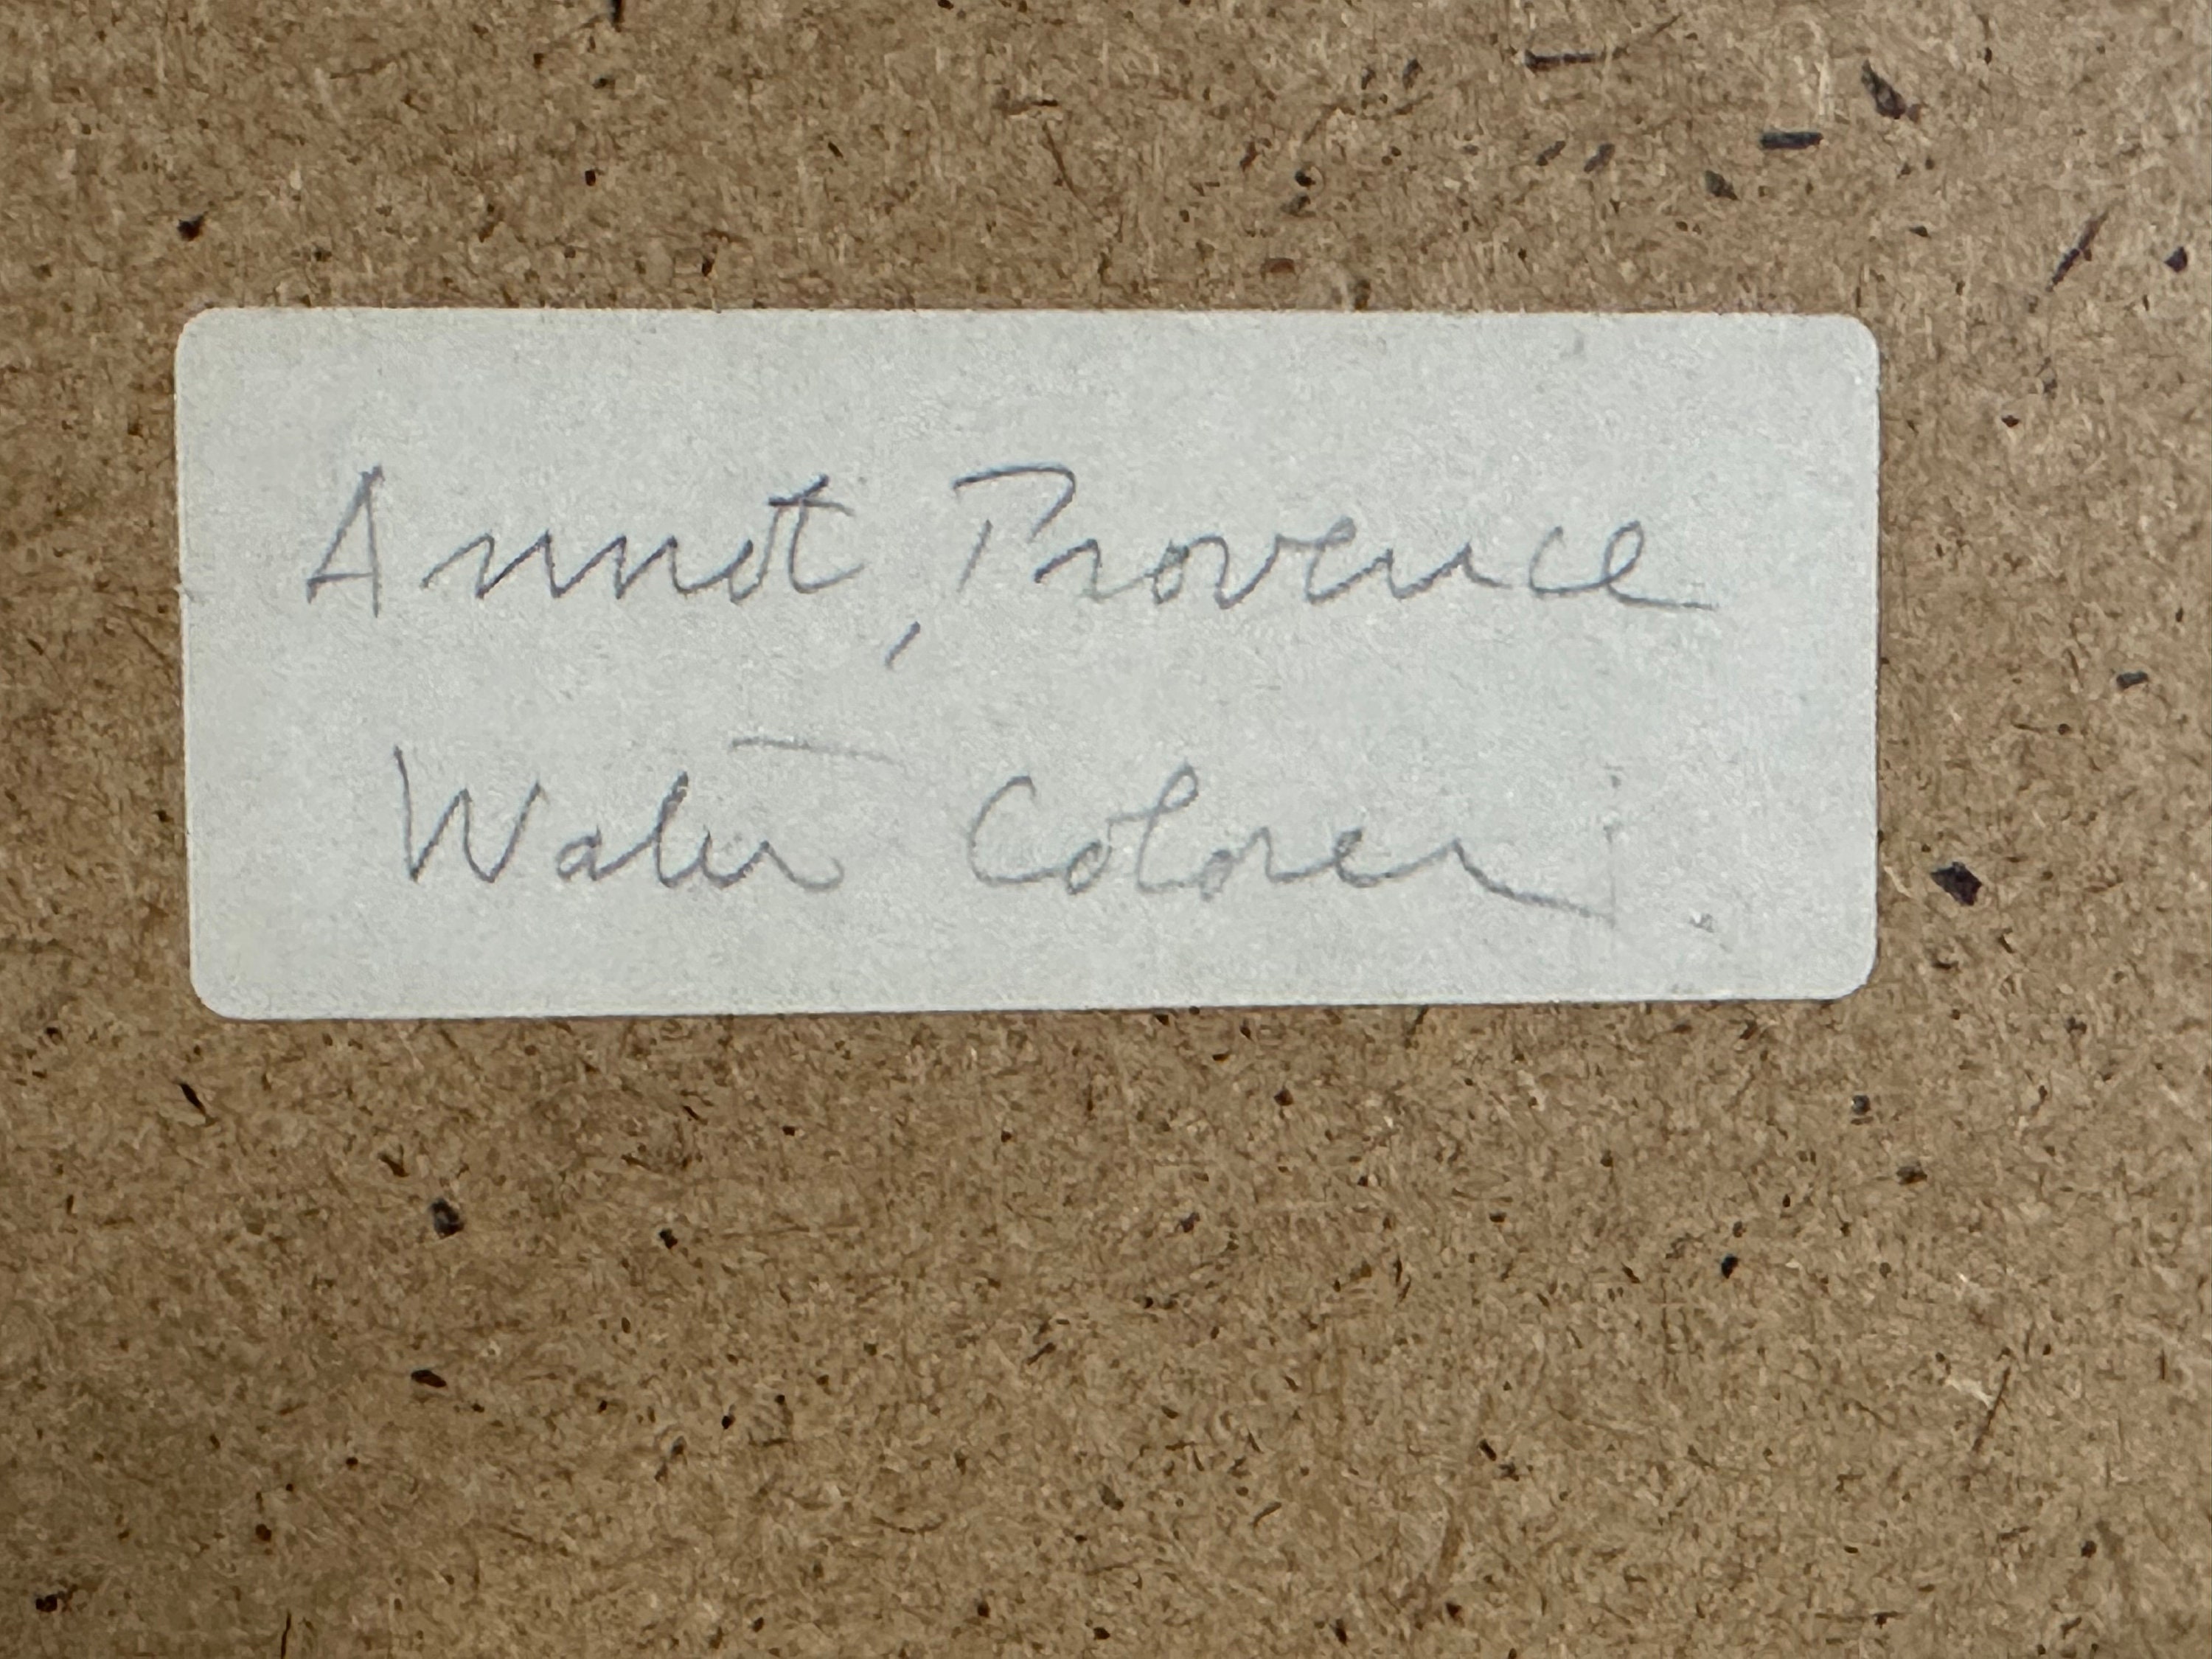 Annot, Provence
Water Colour